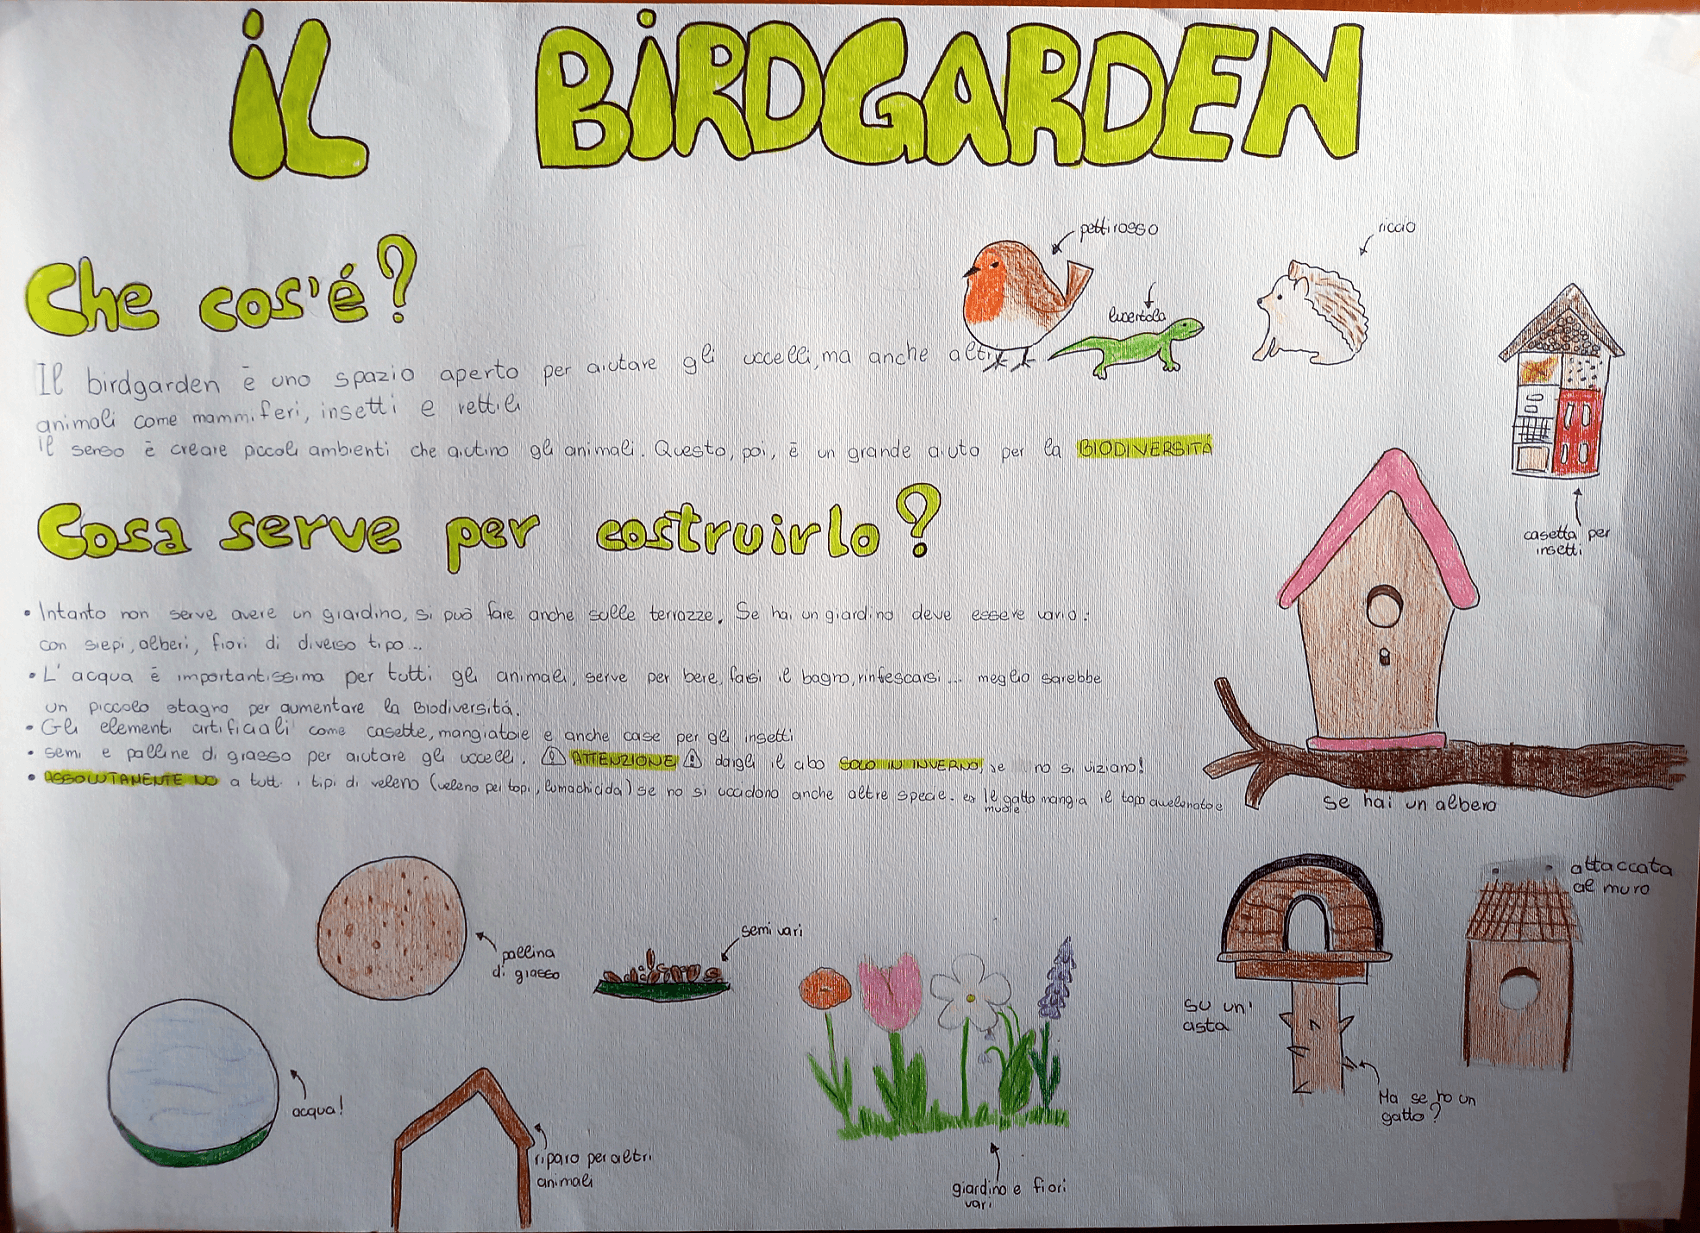 iL BiRDGARDEN
Che cos'é?
Il birdgarden è uno spazio aperto per aiutare gli uccelli, ma anche altri
animali come mammiferi, insetti e rettili
il senso è creare piccoli ambienti che aiutino gli animali. Questo, poi, è un grande aiuto per la BIODIVERSITÁ
pettirosso
lucertola
riccio
casetta per
insetti
Cosa serve per costruirlo?
• Intanto non serve avere un giardino, si può fare anche sulle terrazze. Se hai un giardino deve essere vario:
con siepi, alberi, fiori di diverso tipo...
• L'acqua é importantissima per tutti gli animali, serve per bere, farsi il bagno, rinfescarsi... meglio sarebbe
un piccolo stagno per aumentare la Biodiversitá.
• Gli elementi artificiali come casette, mangiatoie e anche case per gli insetti
• semi e palline di grasso per aiutare gli uccelli. ATTENZIONE dargli il cibo SOLO IN INVERNO, se no si viziano!
• ASSOLUTAMENTE NO a tutti i tipi di veleno (veleno per topi, lumachicida) se no si uccidono anche altre specie. es le gatto mangia il topo avvelenato e
muore
se hai un albero
pallina
di grasso
semi vari
acqua!
riparo per altri
animali
giardino e fiori
vari
su un'
asta
Ma se ho un
gatto?
attaccata
al muro